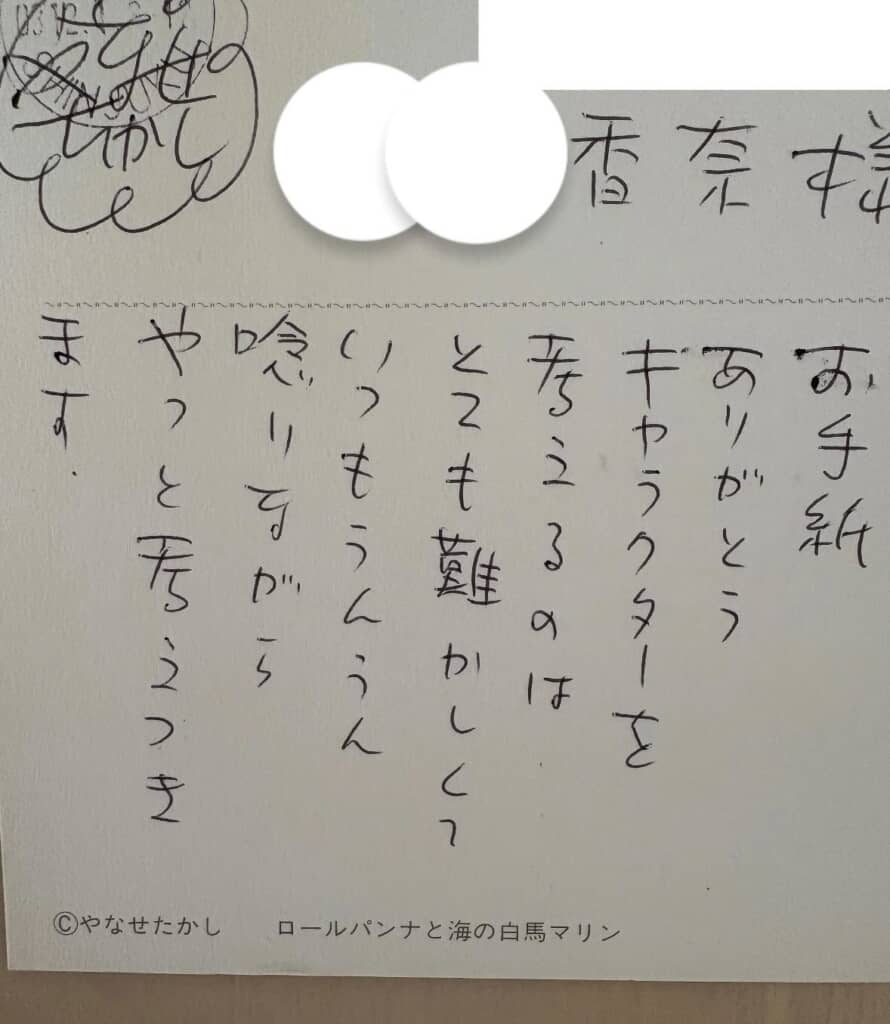 やなせ
たかし
香奈様
お手紙
ありがとう
キャラクターを
考えるのは
とても難かしくて
いつもうんうん
唸りすがら
やっと考えつき
ます.
©やなせたかし ロールパンナと海の白馬マリン